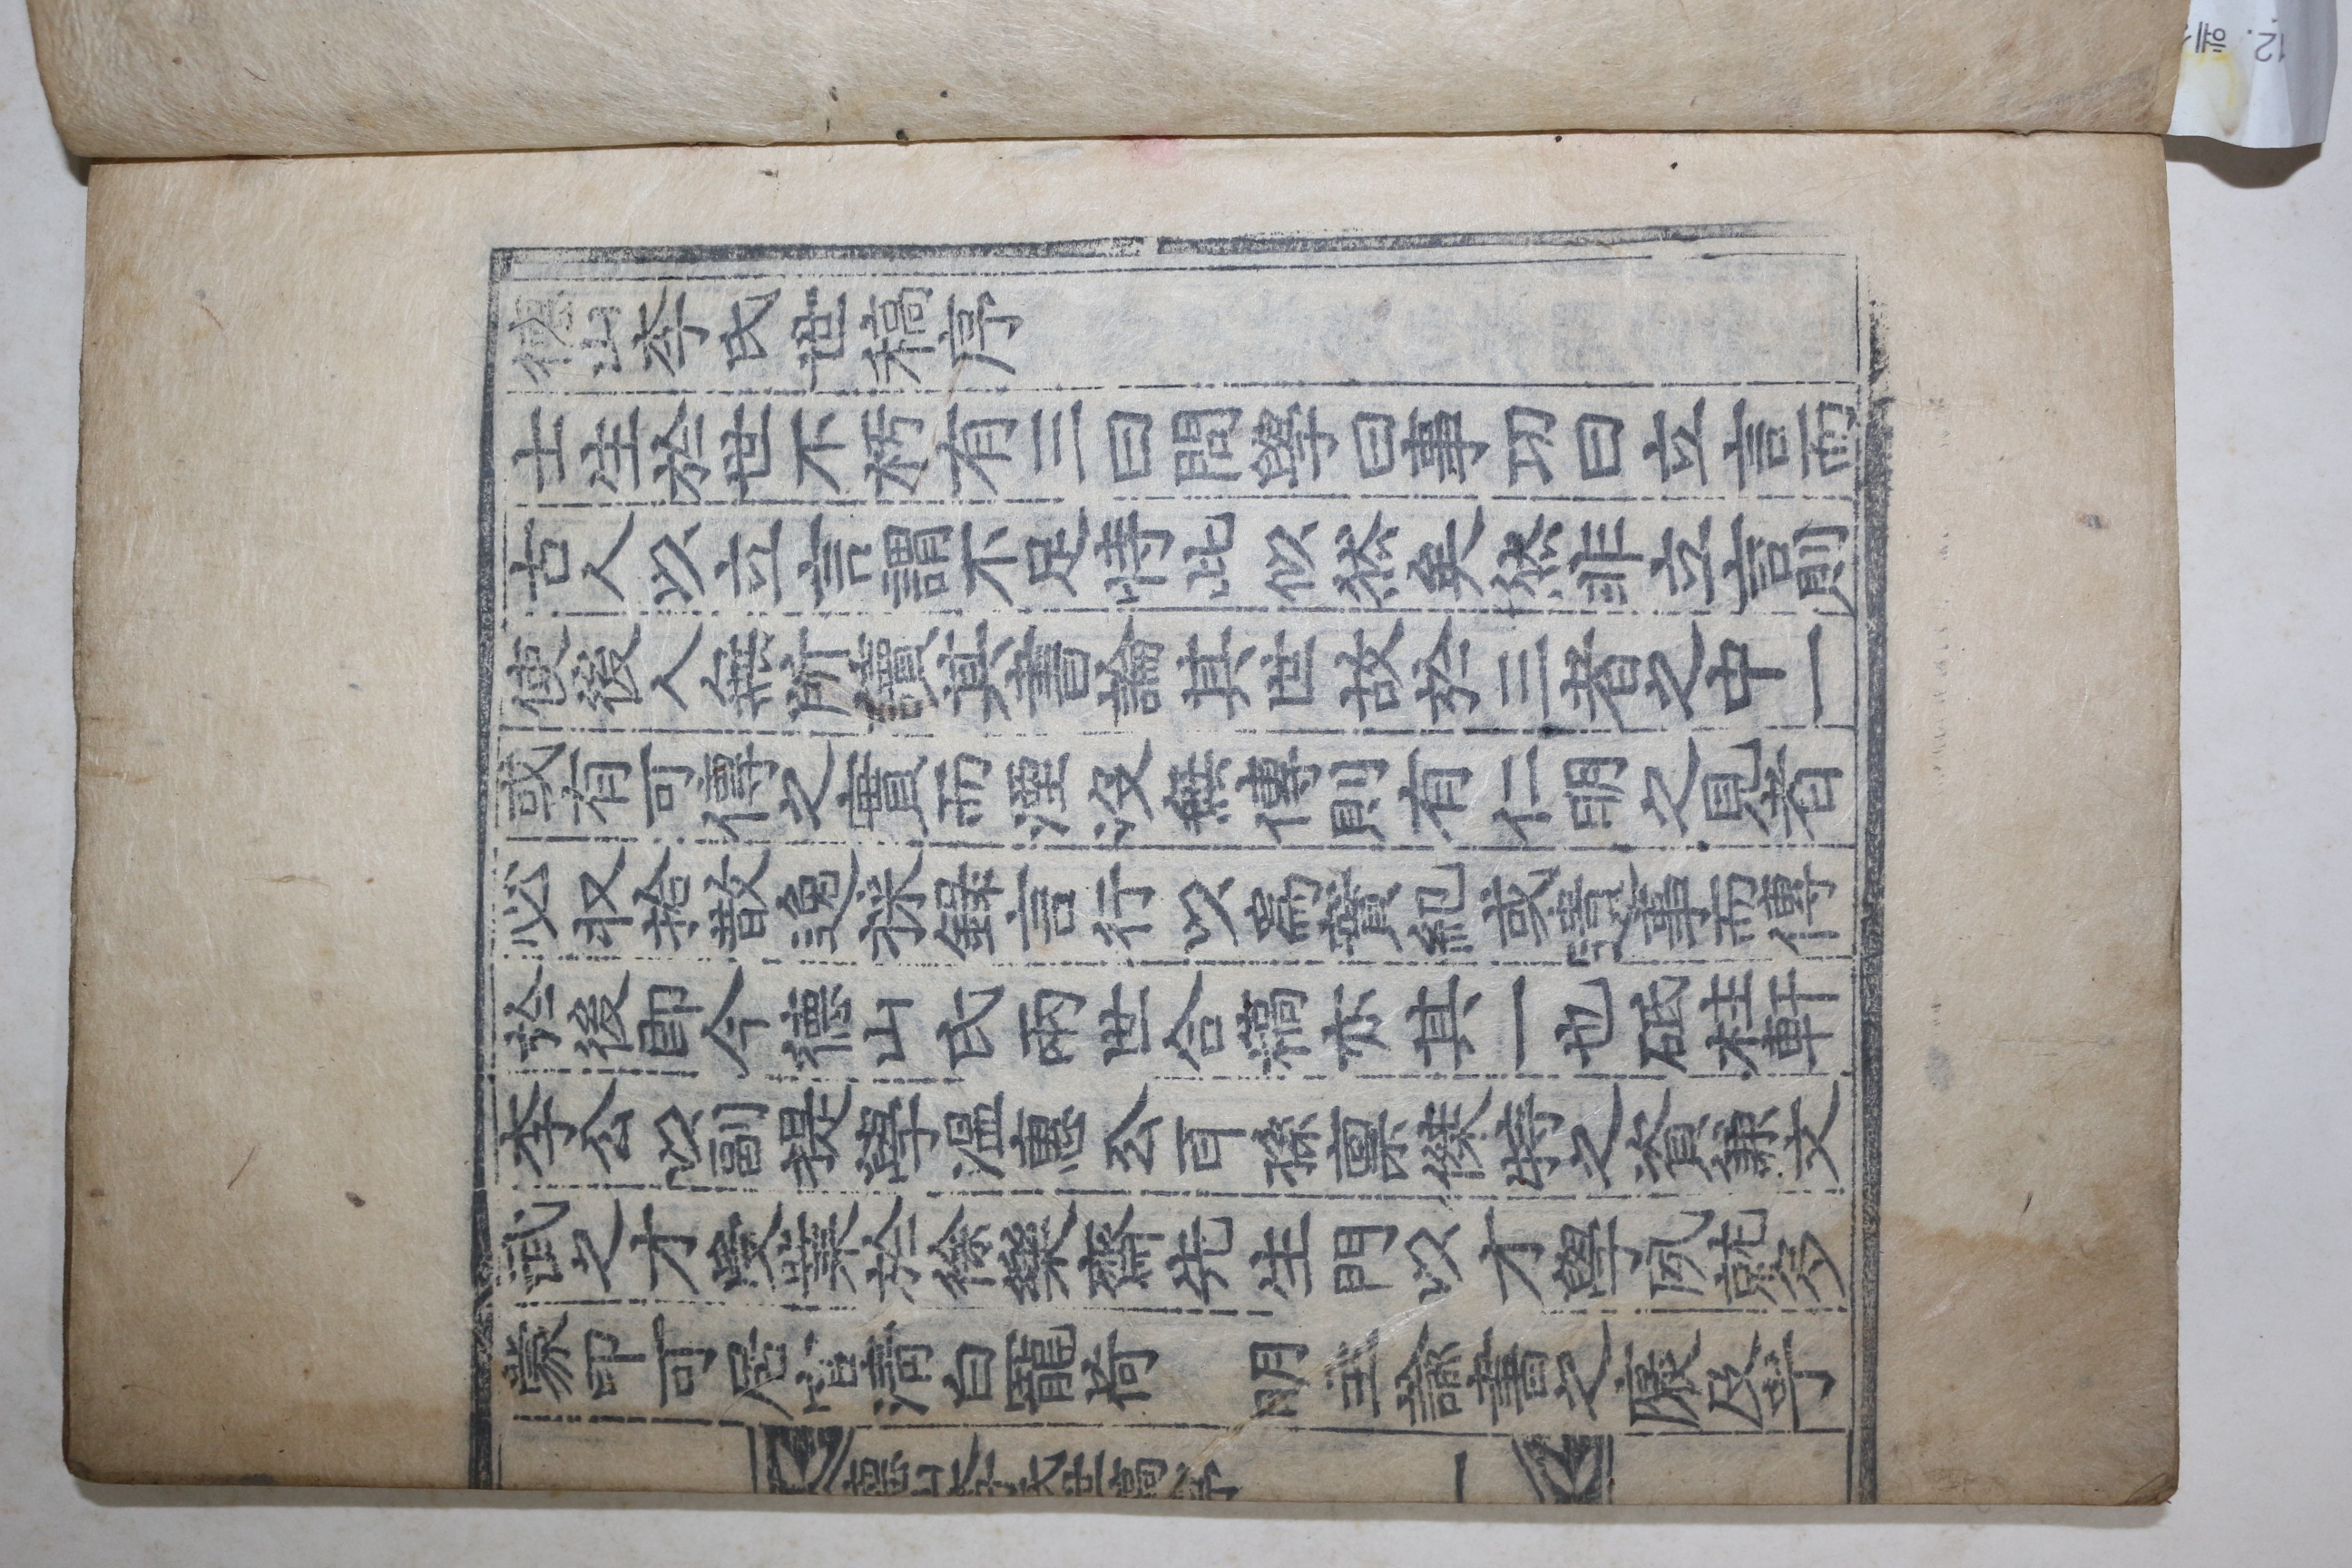 德山李氏世稿序
士生於世不朽有三曰問學曰事功曰立言而
古人以立言謂不足恃此似然矣然非立言則
使後人無所讀其書論其世故於三者之中一
或有可傳之實而湮沒無傳則有仁明之見者
必収拾散逸採錄言行以爲贊紀或遺事而傳
於後卽今德山氏兩世合稿亦其一也砥柱軒
李公以副提學溫惠公耳孫禀傑特之資兼文
武之才受業於徐樂齋先生門以才學夙就多
蒙印可居官淸白罷荷 明主諭書之褒及乎
德山李氏世稿序
一
12. 혜